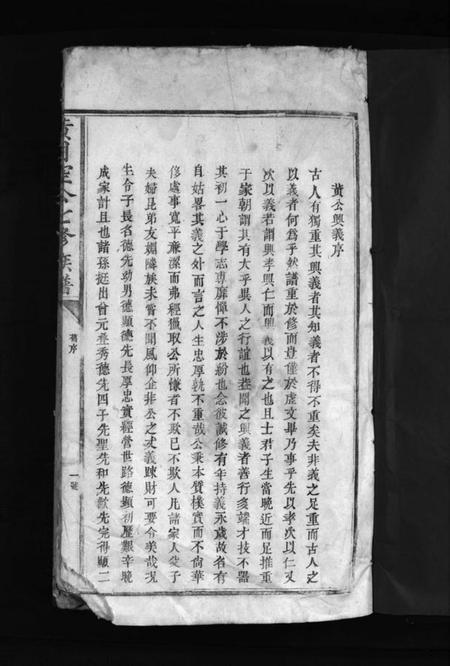 黃公興義序
古人有獨重其興義者其知義者不得不重矣夫非義之足重而古人之
以義者何為乎然譜重於修而豈僅於虛文畢乃事乎先以孝次以仁又
次以義若謂興孝興仁而興義以有之也且士君子生當晚近而足推重
于家朝謂其有大乎異人之行誼也茲閱之興義者善行多端才技不器
其初一心于學志專靡憚不涉於紛也念彼誠修有年持義永歲故名有
自姑畧其義之处而言之人生忠厚孰不重哉公秉本質樸實而不尙華
修處事寬平兼潔而弗經獵取公所慊者不欺已不欺人凡諸家人父子
夫婦昆弟友媚隣族未嘗不聞風仰企非公之丈義踈財可要今美哉況
生令子長名德先幼男德顯德先長厚忠實經營世路德顯初歷艱辛晚
成家計且也諸孫挺出曾元叠秀德先四子先聖先和先歡先完得顯二
舊序
一號